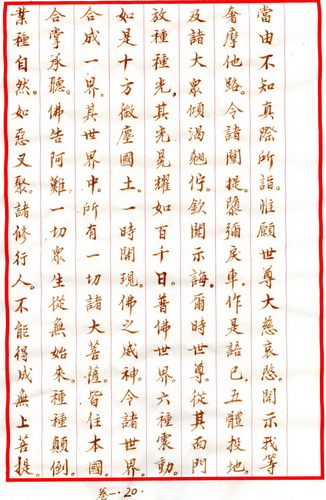 當由不知真際所詣。惟願世尊大慈哀愍開示我等
奢摩他路。令諸闡提隳彌戾車。作是語已。五體投地。
及諸大眾傾渴翹佇。欽聞示誨。爾時世尊。從其面門
放種種光。其光晃耀如百千日。普佛世界。六種震動。
如是十方微塵國土。一時開現。佛之威神。令諸世界
合成一界。其世界中。所有一切諸大菩薩。皆住本國。
合掌承聽。佛告阿難。一切眾生從無始來。種種顛倒。
業種自然。如惡叉聚。諸修行人。不能得成無上菩提。
卷一·20·